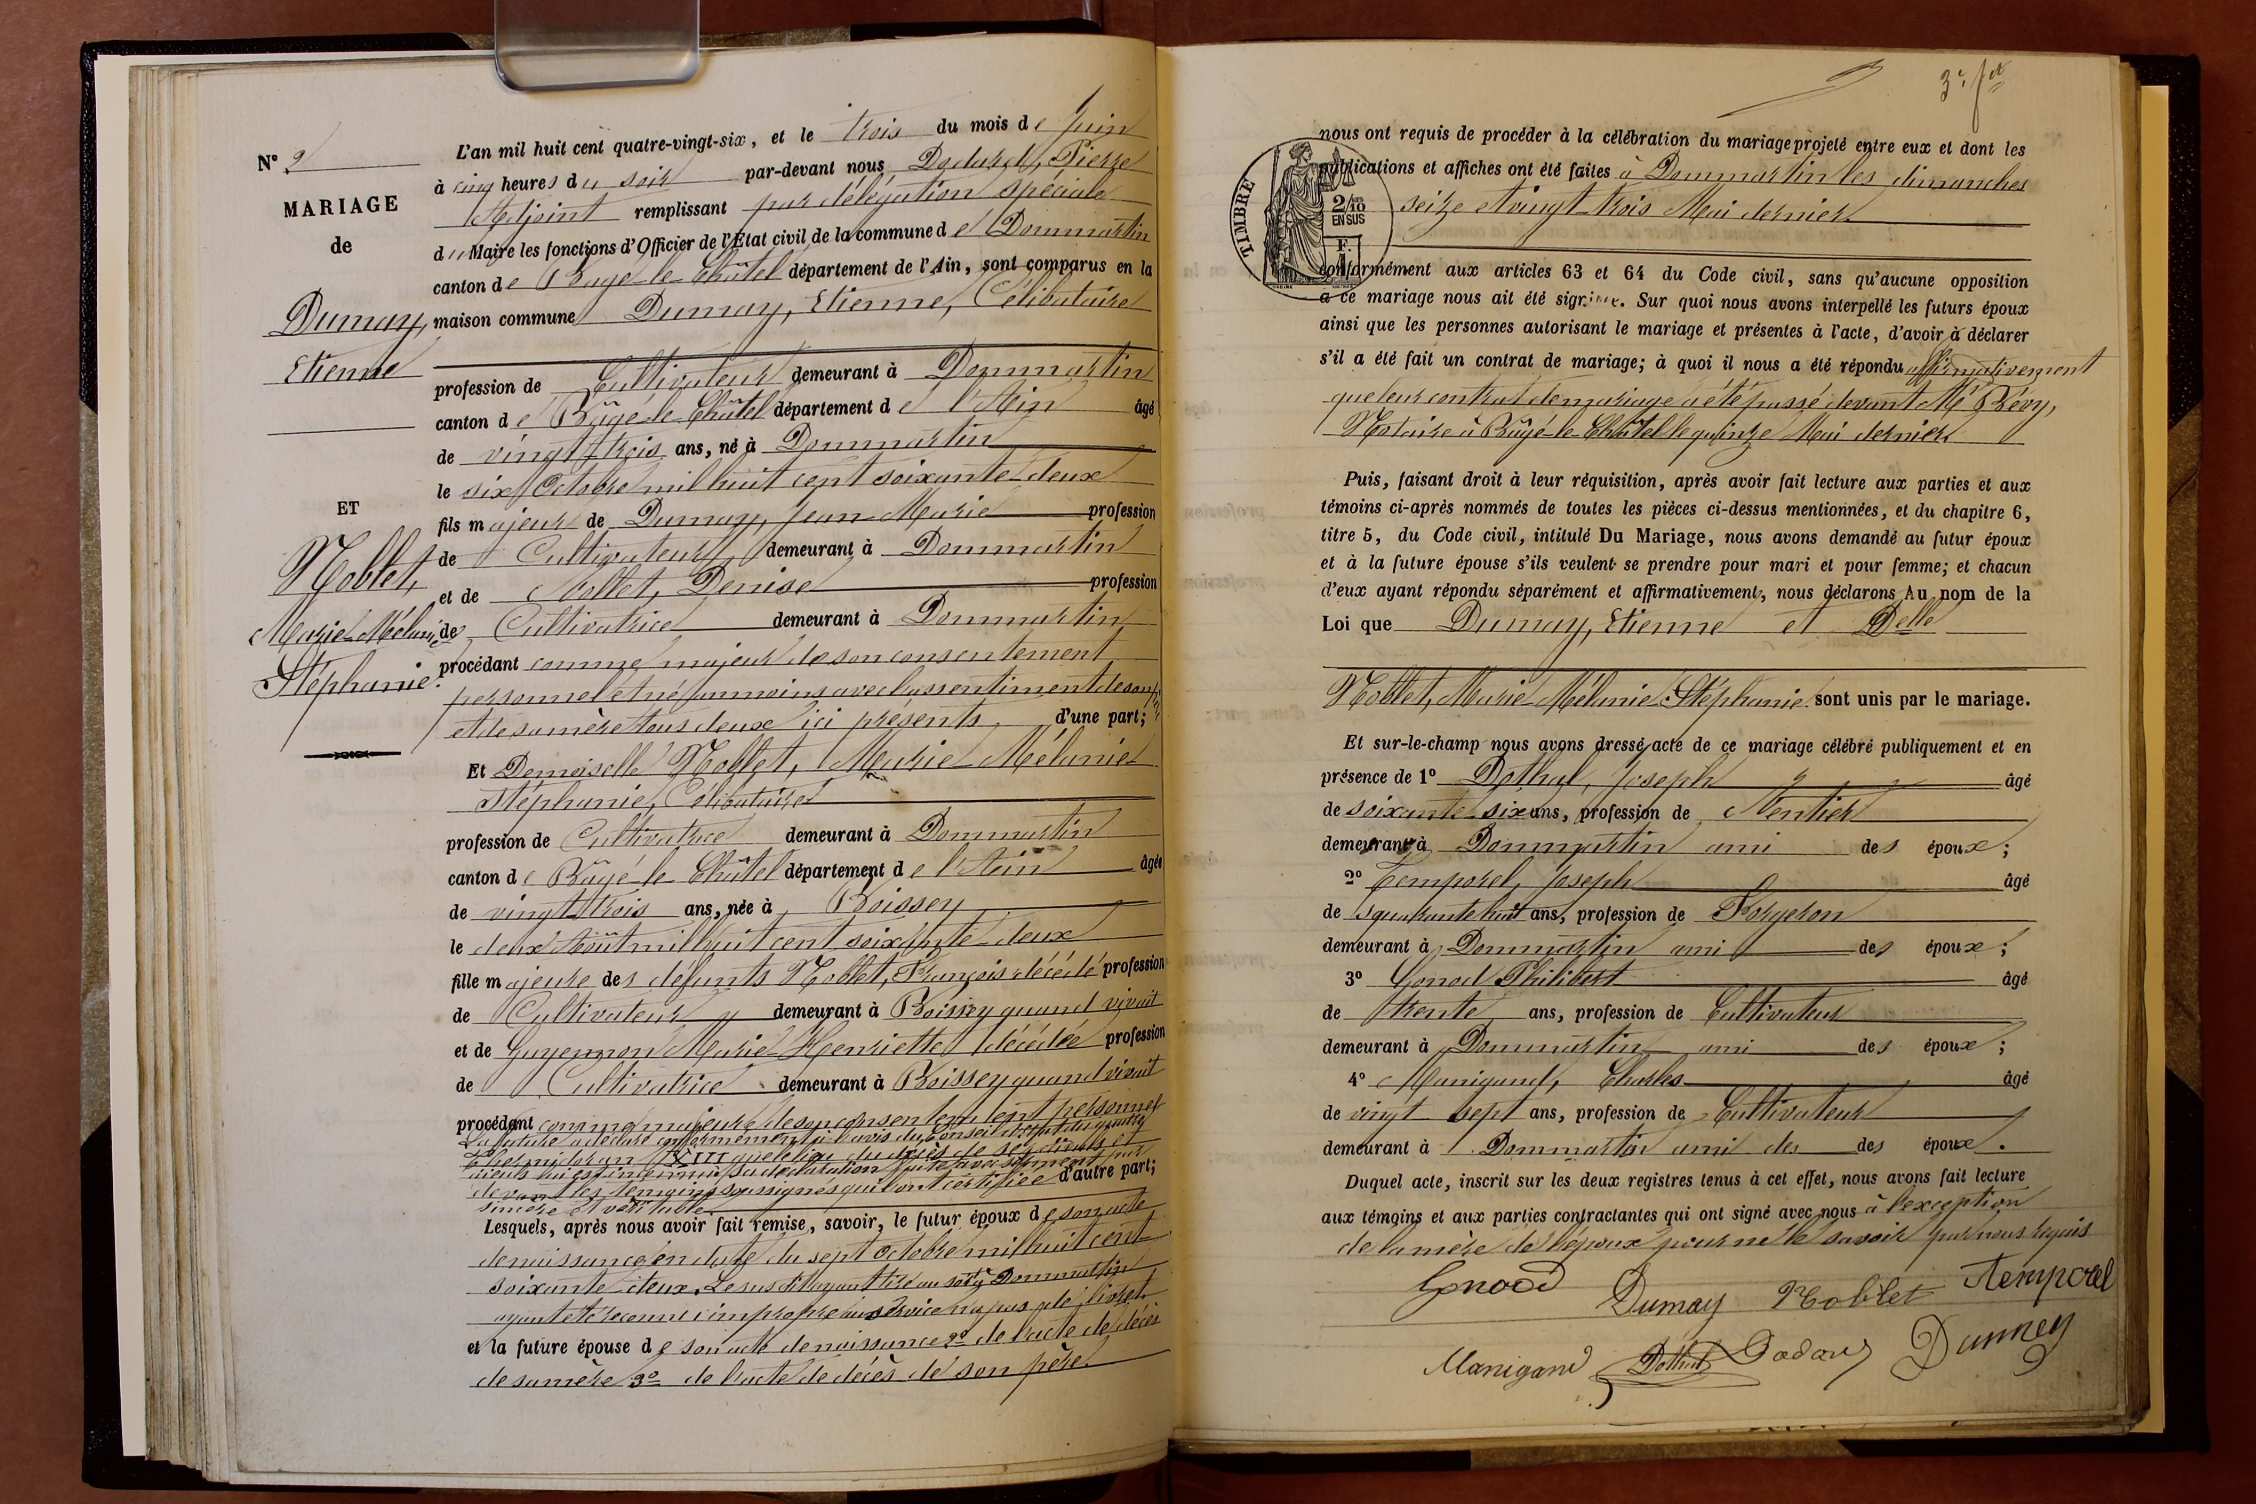 N° 9
MARIAGE
de
Dumay,
Etienne
ET
Noblet,
Marie Mélanie
Stéphanie.
L'an mil huit cent quatre-vingt-six, et le trois du mois de Juin
à cinq heures du soir par-devant nous Pierre
Adjoint remplissant par délégation spéciale
du Maire les fonctions d'Officier de l'État civil de la commune de Dommartin
canton de Bâgé-le-Châtel département de l'Ain, sont comparus en la
maison commune Dumay, Etienne, Célibataire
profession de Cultivateur demeurant à Dommartin
canton de Bâgé-le-Châtel département de l'Ain âgé
de vingt trois ans, né à Dommartin
le six Octobre mil huit cent soixante-deux
fils majeur de Dumay, Jean-Marie profession
de Cultivateur demeurant à Dommartin
et de Denise profession
de Cultivatrice demeurant à Dommartin
procédant comme majeur de son consentement
personnel et néanmoins avec l'assentiment de son père
et de sa mère tous deux ici présents, d'une part;
Et Demoiselle Noblet, Marie Mélanie
Stéphanie, Célibataire
profession de Cultivatrice demeurant à Dommartin
canton de Bâgé-le-Châtel département de l'Ain âgée
de vingt trois ans, née à Boissey
le deux Août mil huit cent soixante-deux
fille majeure des défunts Noblet, François décédé profession
de Cultivateur demeurant à Boissey quand vivait
et de Guyennon Marie Henriette décédée profession
de Cultivatrice demeurant à Boissey quand vivait
procédant comme majeure de son consentement personnel
La future a déclaré conformément à l'avis du Conseil d'Etat du quatre
thermidor an XIII que le lieu du décès de ses divers
aieuls lui est inconnu, sa déclaration faite avec serment par
devant les témoins soussignés qui l'ont certifiée d'autre part;
sincère et véritable.
Lesquels, après nous avoir fait remise, savoir, le futur époux de son acte
de naissance en date du sept Octobre mil huit cent
soixante-deux. Le susdit ayant tiré au sort à Dommartin
ayant été reconnu impropre au service n'a pas de livret.
et la future épouse de son acte de naissance 2° de l'acte de décès
de sa mère 3° de l'acte de décès de son père.
TIMBRE
2/10
EN SUS
nous ont requis de procéder à la célébration du mariage projeté entre eux et dont les
publications et affiches ont été faites à Dommartin les dimanches
seize et vingt-trois Mai dernier
conformément aux articles 63 et 64 du Code civil, sans qu'aucune opposition
à ce mariage nous ait été signifiée. Sur quoi nous avons interpellé les futurs époux
ainsi que les personnes autorisant le mariage et présentes à l'acte, d'avoir à déclarer
s'il a été fait un contrat de mariage; à quoi il nous a été répondu affirmativement
que leur contrat de mariage a été passé devant Me Bévy,
Notaire à Bâgé-le-Châtel le quinze Mai dernier
Puis, faisant droit à leur réquisition, après avoir fait lecture aux parties et aux
témoins ci-après nommés de toutes les pièces ci-dessus mentionnées, et du chapitre 6,
titre 5, du Code civil, intitulé Du Mariage, nous avons demandé au futur époux
et à la future épouse s'ils veulent se prendre pour mari et pour femme; et chacun
d'eux ayant répondu séparément et affirmativement, nous déclarons Au nom de la
Loi que Dumay, Etienne et Delle
Noblet, Marie Mélanie Stéphanie sont unis par le mariage.
Et sur-le-champ nous avons dressé acte de ce mariage célébré publiquement et en
présence de 1° Dothal, Joseph âgé
de soixante-six ans, profession de Rentier
demeurant à Dommartin ami des époux;
2° Temporel, Joseph âgé
de quarante huit ans, profession de Forgeron
demeurant à Dommartin ami des époux;
3° Gonod Philibert âgé
de trente ans, profession de Cultivateur
demeurant à Dommartin ami des époux;
4° Manigand, Charles âgé
de vingt sept ans, profession de Cultivateur
demeurant à Dommartin ami des des époux.
Duquel acte, inscrit sur les deux registres tenus à cet effet, nous avons fait lecture
aux témoins et aux parties contractantes qui ont signé avec nous à l'exception
de la mère de l'époux pour ne le savoir par nous requis
Gonod Dumay Noblet Temporel
Manigand Dothal Dumay